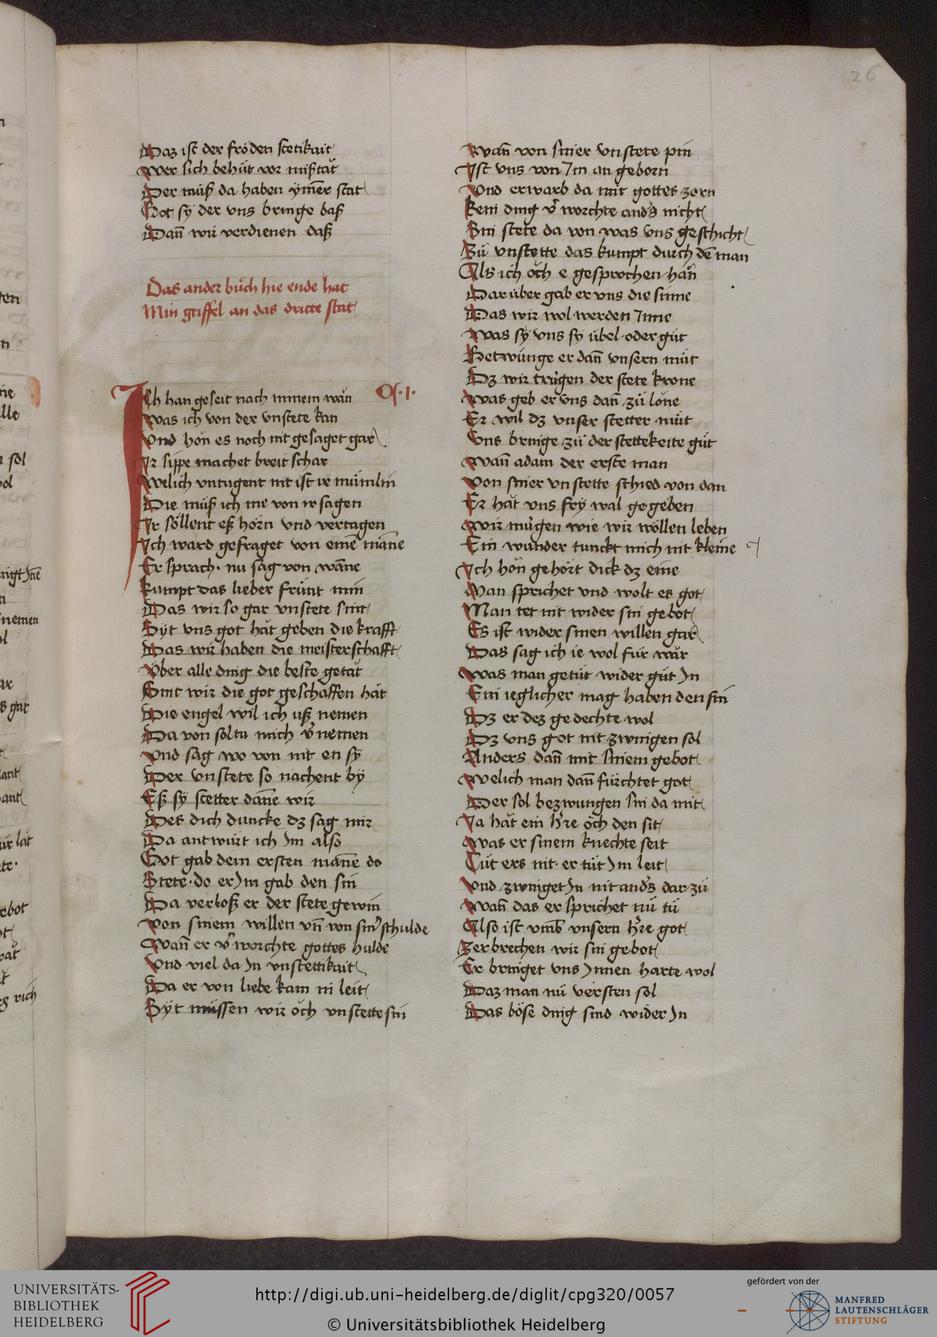 26
Daz ist der fröden stetikait
Wer sich behüt vor mißtät
Der müß da haben ym̄er stat
Got sy der vns bringe daß
Dañ wir verdienen daß
Das ander büch hie ende hat
Min griffel an das dritte stat
Ich han geseit nach minem wän
C. I.
Was ich von der vnstete kan
Vnd hön es noch nit gesaget gar
Ir sippe machet breit schar
Welich vntugent nit ist ir mümlin
Die müß ich me von ir sagen
Ir söllent eß hörn vnd vertagen
Ich ward gefraget von einē māne
Er sprach nu sag von wāne
Kumpt das lieber frünt min
Das wir so gar vnstete sint
Syt vns got hät geben die krafft
Das wir haben die meisterschafft
Vber alle ding die beste getät
Sint wir die got geschaffen hät
Die engel wil ich uß nemen
Da von soltu mich v̄nemen
Vnd sag wo von nit en sy
Der vnstete so nachent by
Eß sy stetter dāne wir
Des dich duncke dz sag mir
Da antwürt ich Im also
Got gab dem ersten māne do
Stete do er Im gab den sin
Da verloß er der stete gewin
Von sinem willen vn̄ von sin' schulde
Wañ er v'worchte gottes hulde
Vnd viel da In vnstettikait
Da er von liebe kam in leit
Syt müssen wir öch vnstette sin
Wañ von siner vnstete pin
Ist vns von Im an geborn
Vnd erwarb da mit gottes zorn
Kein ding v'worchte and's nicht
Sin stete da von was vns geschicht
Sü vnstette das kumpt durch dē man
Als ich öch e gesprochen hän
Dar über gab er vns die sinne
Das wir wol werden Inne
Was sy vns sy übel oder güt
Betwünge er dañ vnsern müt
Dz wir trügen der stete krone
Was geb er vns dañ zü löne
Er wil dz vnser stetter müt
Vns bringe zü der stettekeite güt
Wañ adam der erste man
Von siner vnstette schied von dan
Er hät vns fry wal gegeben
Wir mügen wie wir wöllen leben
Ein wunder tunckt mich nit kleine
Ich hön gehört dick dz eine
Man sprichet vnd wolt es got
Man tet nit wider sin gebot
Es ist wider sinen willen gar
Das sag ich ie wol für wär
Was man getüt wider güt In
Ein ieglicher mag haben den sin
Dz er dez gedechte wol
Dz vns got nit zwingen sol
Anders dañ mit sinem gebot
Welich man dañ fürchtet got
Der sol bezwungen sin da mit
Ja hät ein h're öch den sit
Was er sinem knechte seit
Tüt ers nit er tüt Im leit
Vnd zwinget In nit and's dar zü
Wañ das er sprichet nü tü
Also ist vmb vnsern h're got
Zerbrechen wir sin gebot
Er bringet vns Innen harte wol
Daz man nü versten sol
Das böse ding sind wider In
UNIVERSITÄTS-
BIBLIOTHEK
HEIDELBERG
http://digi.ub.uni-heidelberg.de/diglit/cpg320/0057
© Universitätsbibliothek Heidelberg
gefördert von der
MANFRED
LAUTENSCHLÄGER
STIFTUNG